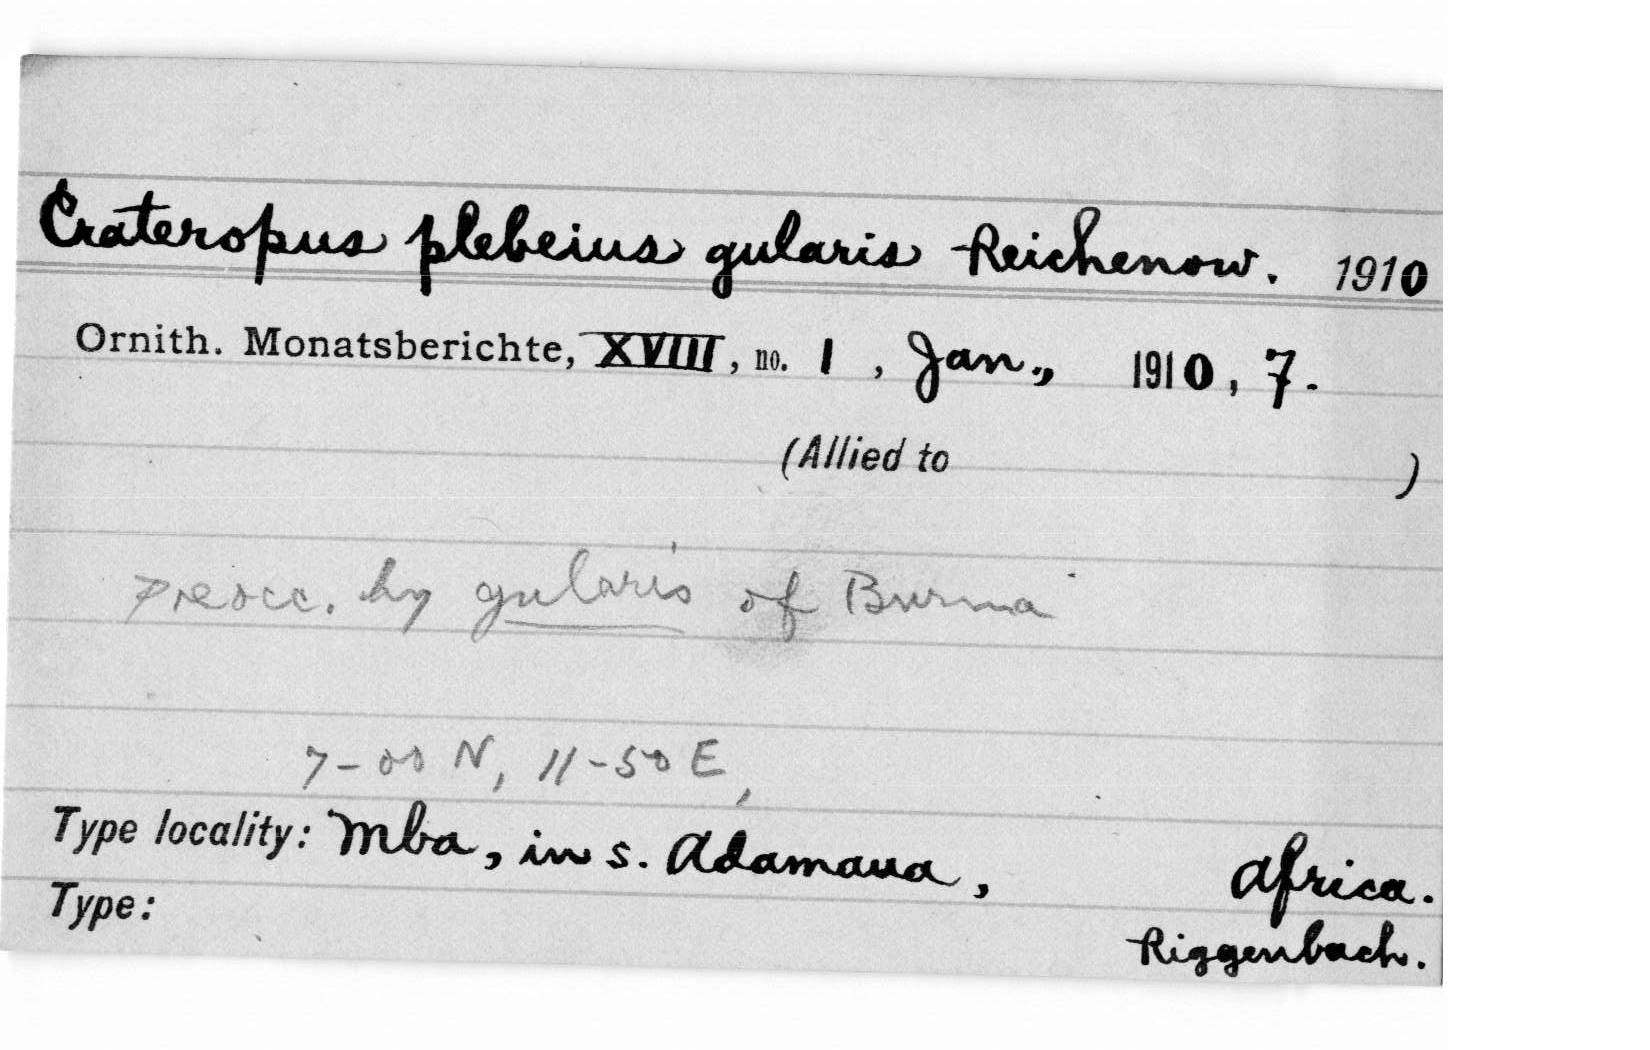 Crateropus plebeius gularis Reichenow. 1910
Ornith. Monatsberichte, XVIII, no. 1, Jan., 1910, 7.
(Allied to )
preocc. by gularis of Burma
7-00 N, 11-50 E,
Type locality: Mba, in s. Adamaua, Africa.
Type: Riggenbach.